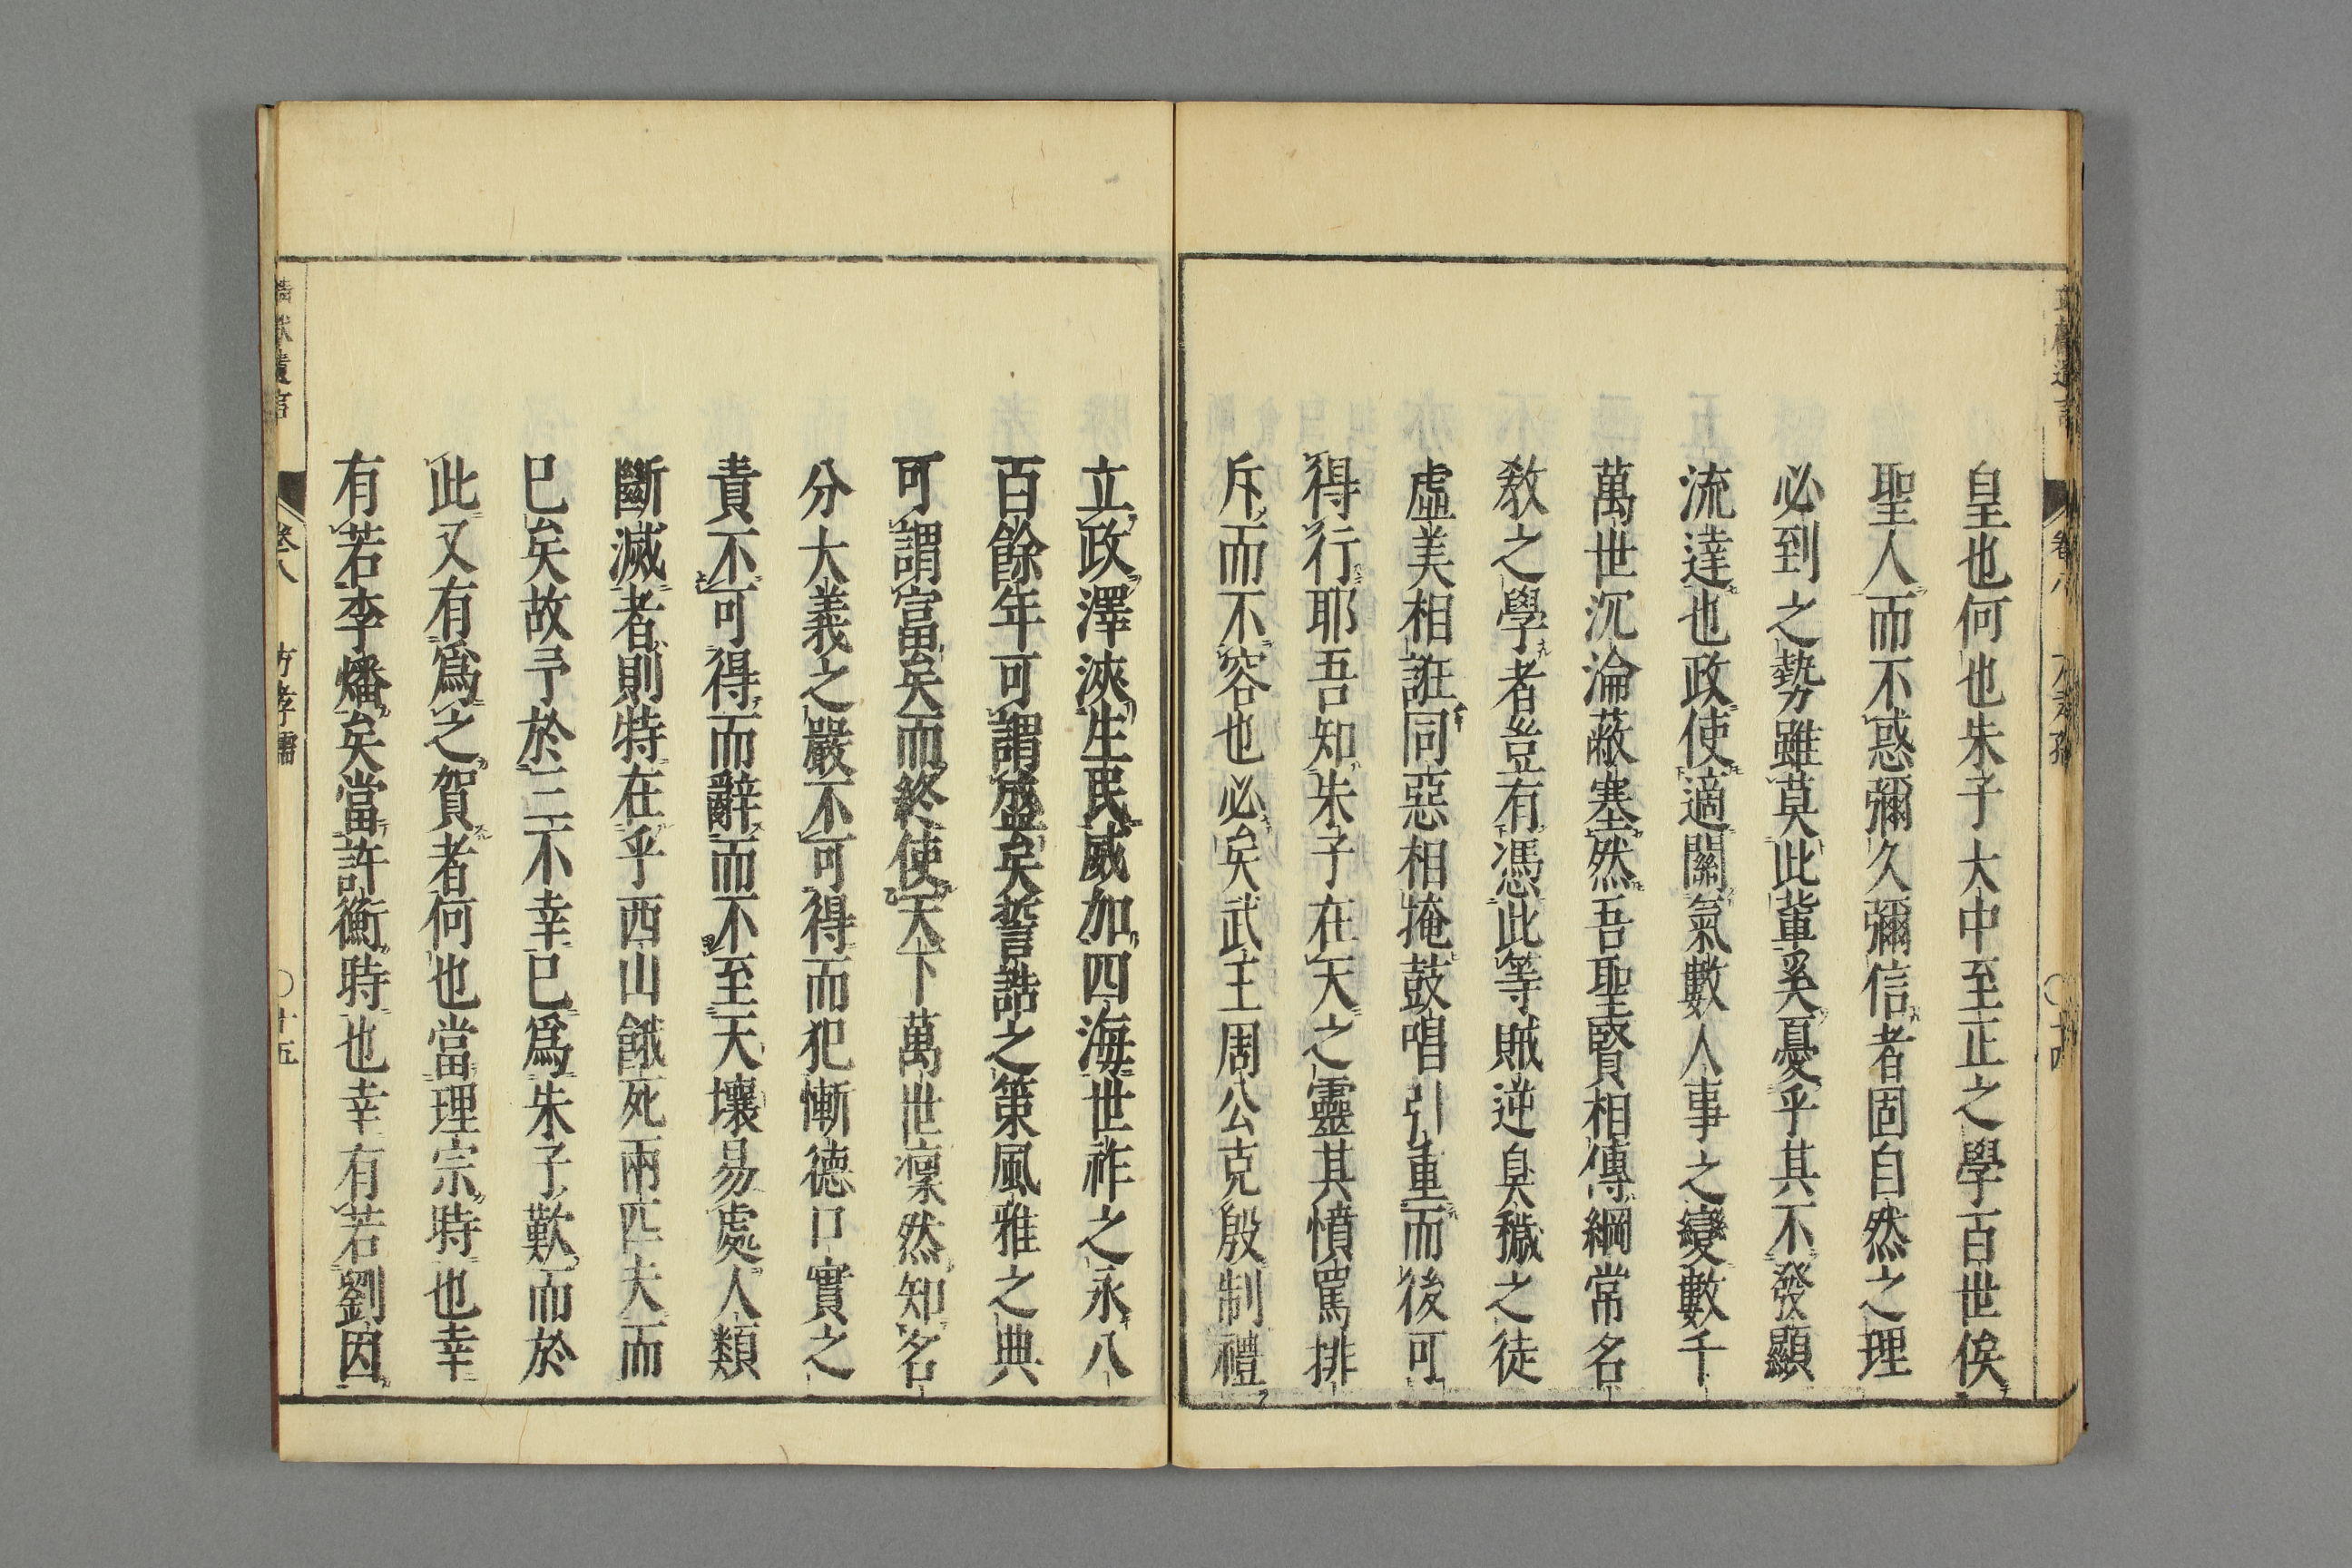 皇也何也朱子大中至正之學百世俟
聖人而不惑彌久彌信者固自然之理
必到之勢雖莫此輩奚憂乎其不發顯
流達也政使適關氣數人事之變數千
萬世沉淪蔽塞然吾聖賢相傳綱常名
敎之學者豈有憑此等賊逆臭穢之徒
虛美相誑同惡相掩鼓唱引重而後可
得行耶吾知朱子在天之靈其憤罵排
斥而不容也必矣武王周公克殷制禮
立政澤浹生民威加四海世祚之永八
百餘年可謂盛矣誓誥之策風雅之典
可謂富矣而終使天下萬世凜然知名
分大義之嚴不可得而犯慚德口實之
責不可得而辭而不至天壤易處人類
斷滅者則特在乎西山餓死兩匹夫而
已矣故予於三不幸已爲朱子歎而於
此又有爲之賀者何也當理宗時也幸
有若李燔矣當許衡時也幸有若劉因
卷八 方孝孺 〇十五